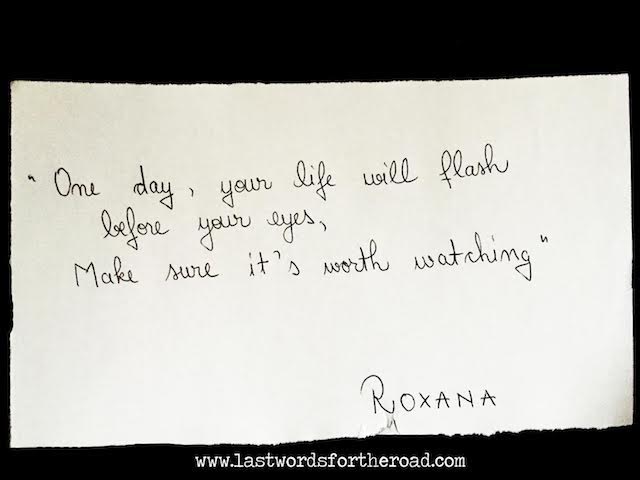 "One day, your life will flash
before your eyes,
Make sure it's worth watching"
ROXANA
www.lastwordsfortheroad.com